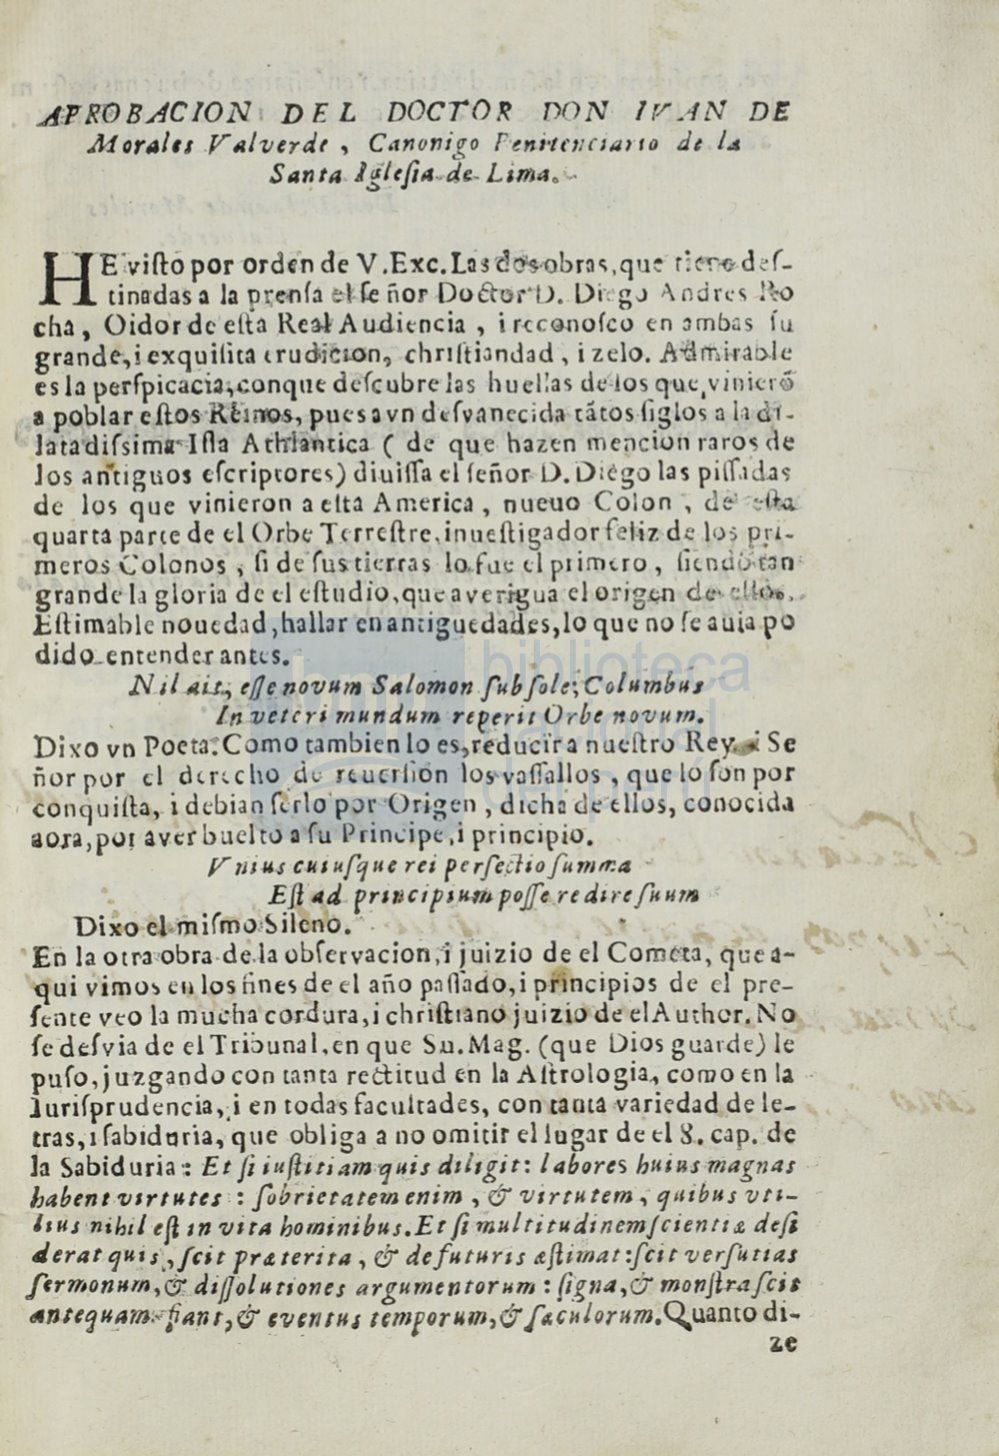 APROBACION DEL DOCTOR DON IVAN DE
Morales Valverde, Canonigo Penitenciario de la
Santa Iglesia de Lima.
HE visto por orden de V.Exc. Las dos obras, que tiene des-
tinadas a la prensa el señor Doctor D. Diego Andres Ro
cha, Oidor de esta Real Audiencia, i reconosco en ambas su
grande, i exquisita erudicion, christiandad, i zelo. Admirable
es la perspicacia, conque descubre las huellas de los que vinierõ
a poblar estos Reinos, pues a vn desvanecida tãtos siglos a la di-
latadissima Isla Athlantica ( de que hazen mencion raros de
los antiguos escriptores) diuissa el señor D. Diego las pissadas
de los que vinieron a esta America, nueuo Colon, de esta
quarta parte de el Orbe Terrestre, inuestigador feliz de los pri-
meros Colonos, si de sus tierras lo fue el primero, siendo tan
grande la gloria de el estudio, que averigua el origen de ellos.
Estimable nouedad, hallar en antiguedades, lo que no se auia po
dido entender antes.
Nil ait, esse novum Salomon sub sole; Columbus
In veteri mundum reperit Orbe novum.
Dixo vn Poeta. Como tambien lo es, reducir a nuestro Rey, i Se
ñor por el derecho de reuersion los vassallos, que lo son por
conquista, i debian serlo por Origen, dicha de ellos, conocida
aora, por aver buelto a su Principe, i principio.
Vnius cuiusque rei perfectio summa
Est ad principium posse redire suum
Dixo el mismo Sileno.
En la otra obra de la observacion, i juizio de el Cometa, que a-
qui vimos en los fines de el año passado, i principios de el pre-
sente veo la mucha cordura, i christiano juizio de el Author. No
se desvia de el Tribunal, en que Su. Mag. (que Dios guarde) le
puso, juzgando con tanta rectitud en la Astrologia, como en la
Iurisprudencia, i en todas facultades, con tanta variedad de le-
tras, i sabiduria, que obliga a no omitir el lugar de el 8. cap. de
la Sabiduria: Et si iustitiam quis diligit: labores huius magnas
habent virtutes: sobrietatem enim, & virtutem, quibus vti-
lius nihil est in vita hominibus. Et si multitudinem scientiæ desi
derat quis, scit præterita, & de futuris æstimat: scit versutias
sermonum, & dissolutiones argumentorum: signa, & monstra scit
antequam fiant, & eventus temporum, & sæculorum. Quanto di-
ze
biblioteca